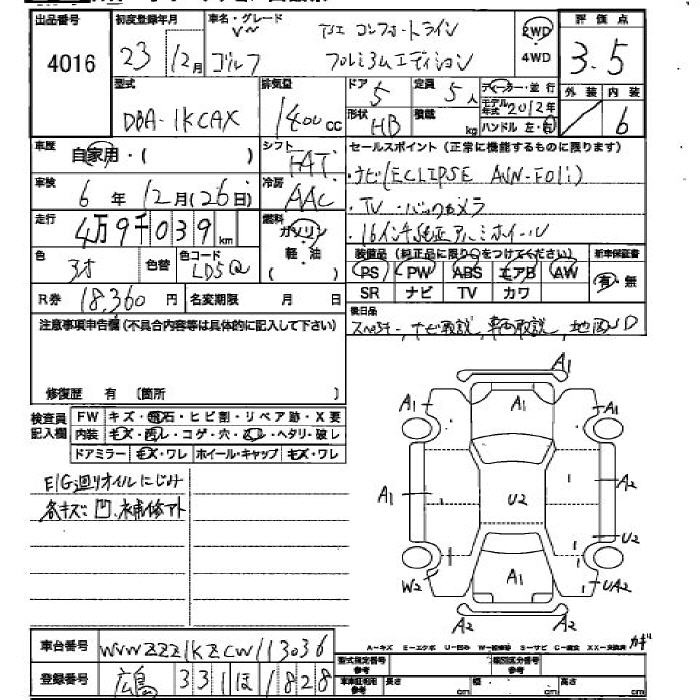 出品番号 初度登録年月 車名・グレード 評価点
4016 23 12月 VW ゴルフ TSI コンフォートライン プレミアムエディション 2WD・4WD 3.5
型式 排気量 ドア 5 定員 5人 ディーラー・並行 外装 内装
DBA-1KCAX 1400cc 形状 HB 積載 kg モデル年式 2012年 6
ハンドル 左・右
車歴 自家用・( ) シフト FAT セールスポイント (正常に機能するものに限ります)
車検 6年 12月(26日) 冷房 AAC ・ナビ(ECLIPSE AVN-F01i)
・TV ・バックカメラ
走行 4万9千039km 燃料 ガソリン ・16インチ純正アルミホイール
軽・油 ( )
色 アオ 色替 色コード LD5Q 装備品 (純正品に限り○をつけてください) 新車保証書
PS PW ABS エアB AW 有・無
R券 18,360円 名変期限 月 日 SR ナビ TV カワ
注意事項申告欄 (不具合内容等は具体的に記入して下さい) 後日品
スペアキー、ナビ取説、車両取説、地図SD
修復歴 有 〔箇所 〕
検査員記入欄 FW キズ・飛石・ヒビ割・リペア跡・X要
内装 キズ・凹レ・コゲ・穴・・ヘタリ・破レ
ドアミラー キズ・ワレ ホイール・キャップ キズ・ワレ
E/G廻りオイルにじみ
各キズ凹、補修アト
A1
A1 A1 A1
A1 U2 A2
U2
W2 A1 UA2
A2 A2
カギ
A-キズ E-エクボ U-凹み W-補修跡 S-サビ C-腐食 XX-交換済
車台番号 WVWZZZ1KZCW113036
型式指定番号 参考 類別区分番号 参考
登録番号 広島 331 ほ 1828 車庫証明用 参考 長さ cm 幅 cm 高さ cm